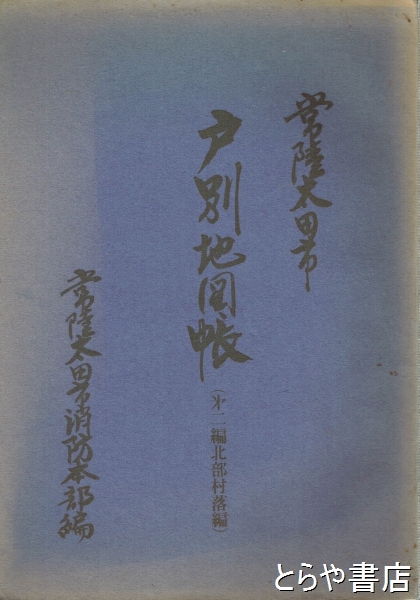 常陸太田市
戸別地図帳
(㐧二編北部村落編)
常陸太田市消防本部編
とらや書店